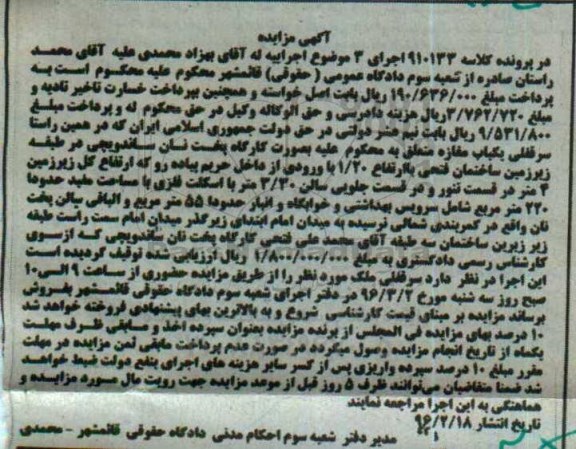 آگهی مزایده
در پرونده کلاسه ۹۱۰۱۳۳ اجرای ۳ موضوع اجراییه له آقای بهزاد محمدی علیه آقای محمد
راستان صادره از شعبه سوم دادگاه عمومی (حقوقی) قائمشهر محکوم علیه محکوم است به
پرداخت مبلغ ۱۹۰/۶۳۶/۰۰۰ ریال بابت اصل خواسته و همچنین بپرداخت خسارت تاخیر تادیه و
مبلغ ۳/۷۶۲/۷۲۰ ریال هزینه دادرسی و حق الوکاله وکیل در حق محکوم له و پرداخت مبلغ
۹/۵۳۱/۸۰۰ ریال بابت نیم عشر دولتی در حق دولت جمهوری اسلامی ایران که در همین راستا
سرقفلی یکباب مغازه متعلق به محکوم علیه بصورت کارگاه پخت نان ساندویچی در طبقه
زیرزمین ساختمان فتحی باارتفاع ۱/۲۰ با ورودی از داخل حریم پیاده رو که ارتفاع کل زیرزمین
۴ متر در قسمت تنور و در قسمت جلویی سالن ۳/۳۰ متر با اسکلت فلزی با مساحت مفید حدودا
۲۲۰ متر مربع شامل سرویس بهداشتی و خوابگاه و انبار حدودا ۵۵ متر مربع و الباقی سالن پخت
نان واقع در کمربندی شمالی نرسیده به میدان امام ابتدای زیرگذر میدان امام سمت راست طبقه
زیر زیرین ساختمان سه طبقه آقای محمد علی فتحی کارگاه پخت نان ساندویچی که ازسوی
کارشناس رسمی دادگستری به مبلغ ۱/۸۰۰/۰۰۰/۰۰۰ ریال ارزیابی شده توقیف گردیده است
این اجرا در نظر دارد سرقفلی ملک مورد نظر را از طریق مزایده حضوری از ساعت ۹ الی۱۰
صبح روز سه شنبه مورخ ۹۶/۳/۲ در دفتر اجرای شعبه سوم دادگاه حقوقی قائمشهر بفروش
برساند مزایده بر مبنای قیمت کارشناسی شروع و به بالاترین بهای پیشنهادی فروخته خواهد شد
۱۰ درصد بهای مزایده فی المجلس از برنده مزایده بعنوان سپرده اخذ و مابقی ظرف مهلت
یکماه از تاریخ انجام مزایده وصول میگردد در صورت عدم پرداخت مابقی ثمن مزایده در مهلت
مقرر مبلغ ۱۰ درصد سپرده واریزی پس از کسر سایر هزینه های اجرای بنفع دولت ضبط خواهد
شد ضمنا متقاضیان می‌توانند ظرف ۵ روز قبل از موعد مزایده جهت رویت مال مورد مزایده و
هماهنگی به این اجرا مراجعه نمایند
تاریخ انتشار ۹۶/۲/۱۸
مدیر دفتر شعبه سوم احکام مدنی دادگاه حقوقی قائمشهر - محمدی